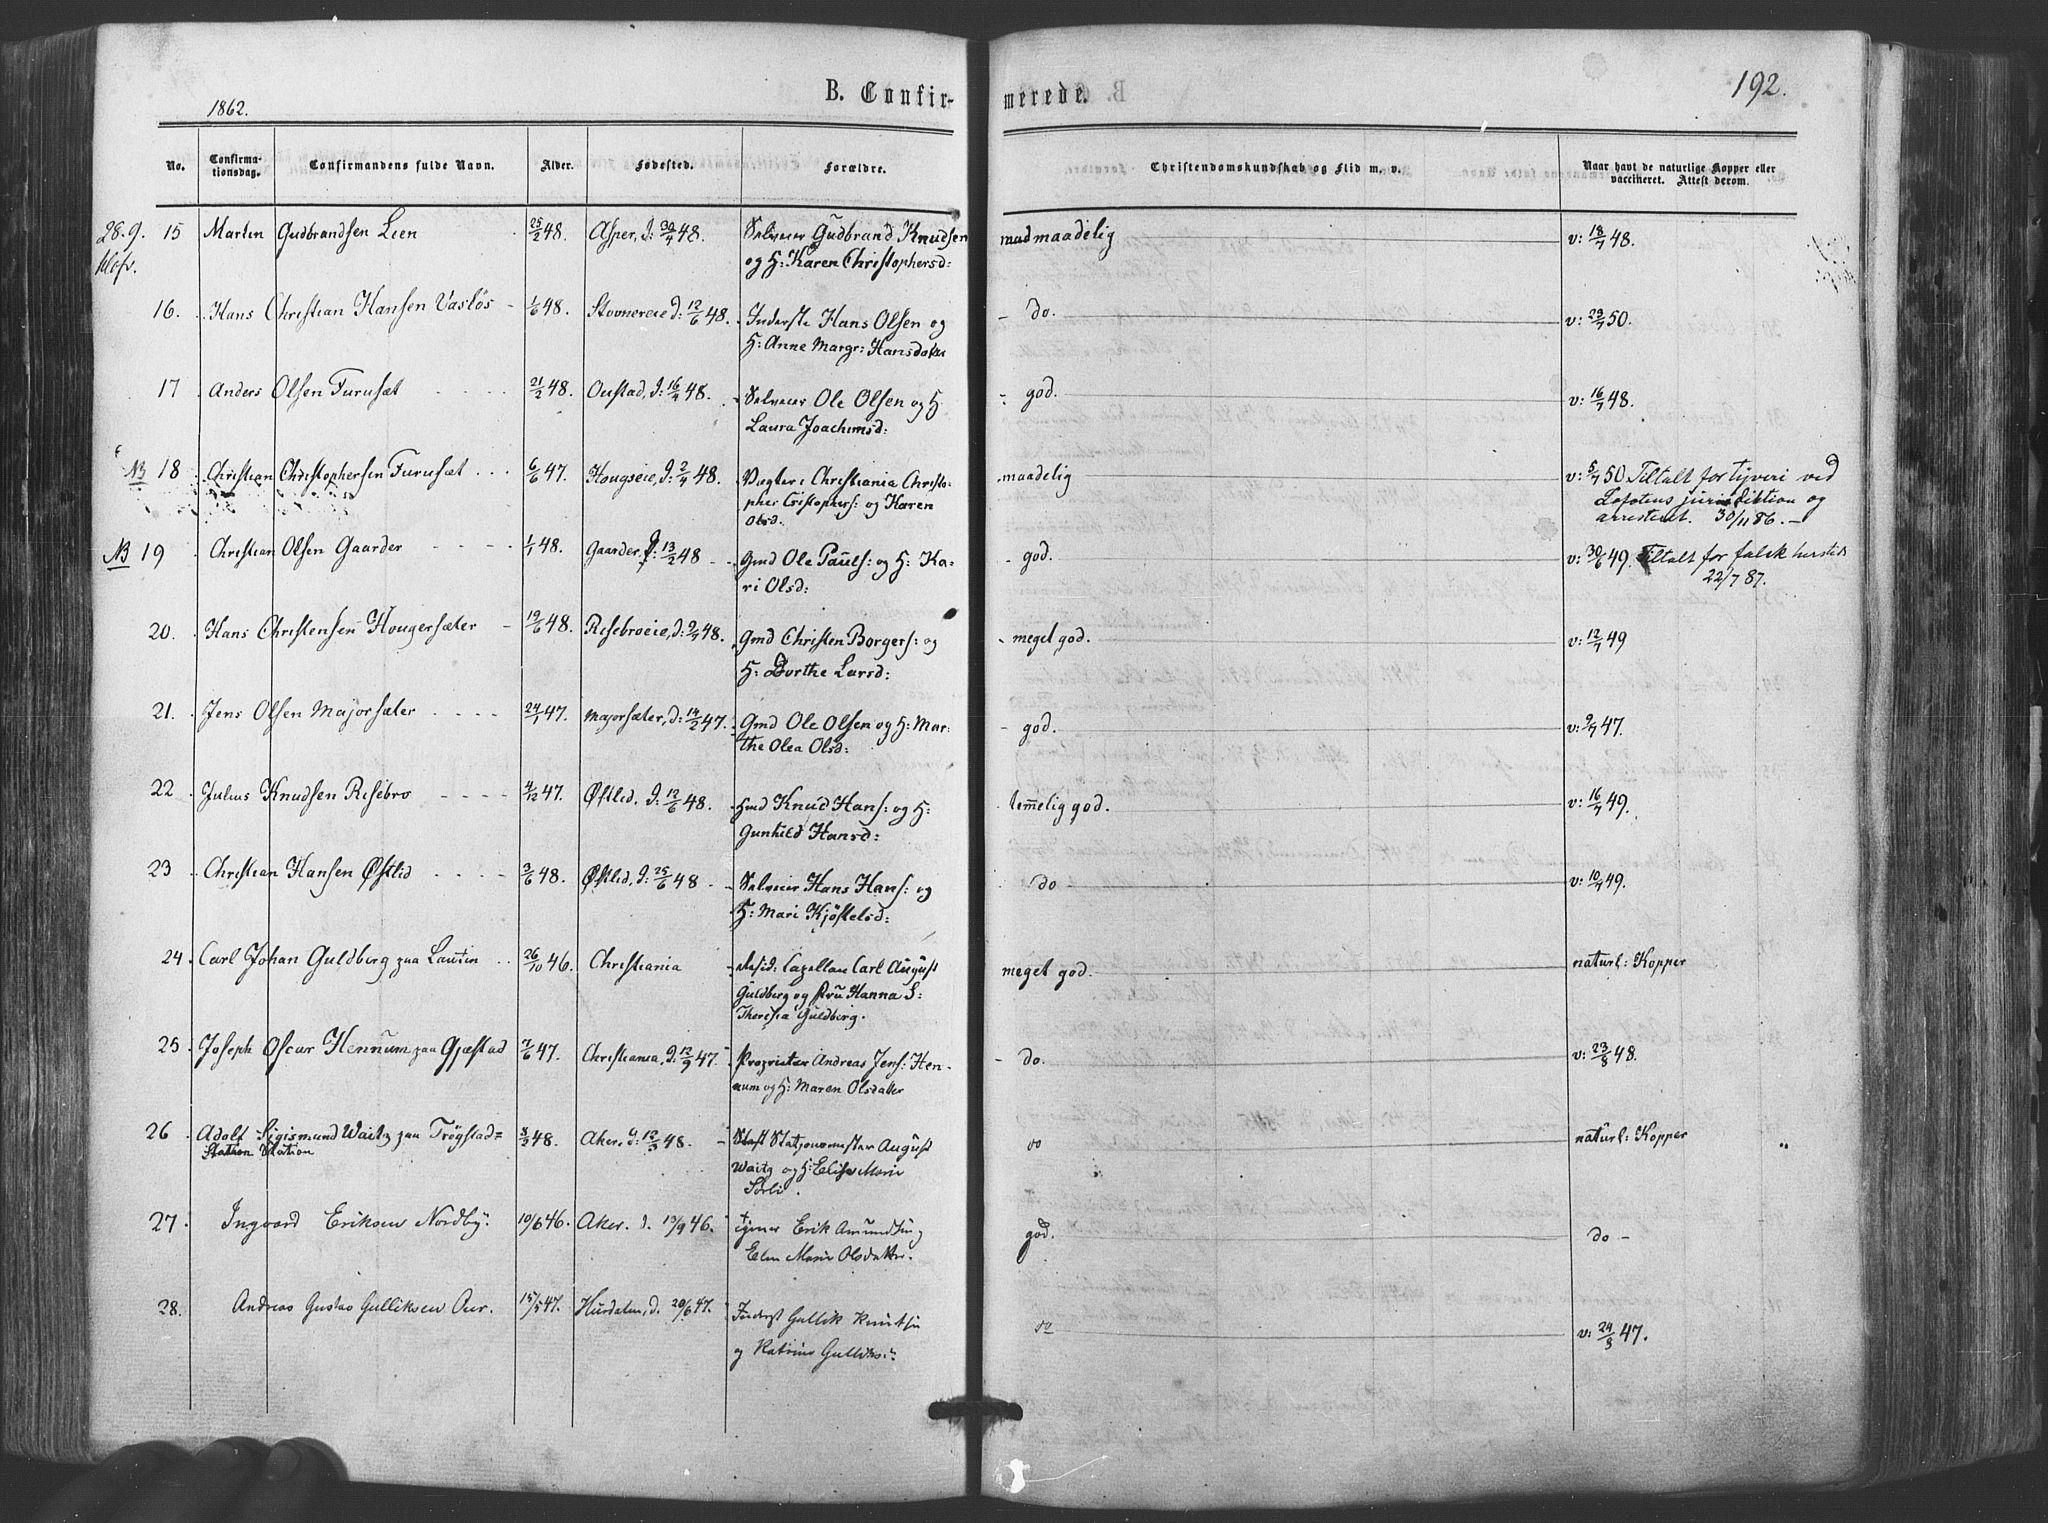 1862.
B. Confir-
merede.
192.
No.
Confirma-
tionsdag.
Confirmandens fulde Navn.
Alder.
Fødested.
Forældre.
Christendomskundskab og Flid m. v.
Naar havt de naturlige Kopper eller
vaccineret. Attest derom.
28.9. 15 Marten Gudbrandsen Lien 25/2 48. Asper, d: 30/4 48. Selveier Gudbrand Knudsen maadelig v: 18/7 48.
og H: Karen Christophersd:
16. Hans Christian Hansen Vasløs - 1/6 48. Stovnereie d: 12/6 48. Inderste Hans Olsen og - do. v: 29/7 50.
H: Anne Margr: Hansdatter
17 Anders Olsen Furusæt 21/2 48. Oustad, d: 16/4 48. Selveier Ole Olsen og H - god. v: 16/7 48.
Laura Joachimsd:
NB 18 Christian Christophersen Furusæt 6/6 47. Hougseie, d: 2/4 48. Vægter i Christiania Christo- maadelig v: 5/7 50 Tiltalt for tyveri ved
pher Cristophers: og Karen Lofotens jurisdiktion og
Olsd. arresteret. 30/11 86. -
NB 19 Christian Olsen Gaarder 1/1 48. Gaarder, d: 13/2 48 Gmd Ole Pauls: og H: Ka- - god. v: 30/6 49. Tiltalt for falsk
ri Olsd: 22/7 87.
20. Hans Christensen Hougersæter - 19/6 48. Risebroeie, d: 9/7 48. Gmd Christen Borgers: og - meget god. v: 12/7 49
H: Dorthe Larsd:
21. Jens Olsen Majorsæter 24/1 47. Majorsæter, d: 14/2 47. Gmd Ole Olsen og H: Mar- - god. v: 9/7 47.
the Olea Olsd:
22 Julius Knudsen Risebro 4/12 47. Østlid. d: 12/6 48. Hmd Knud Hans: og H: temmelig god. v: 16/7 49.
Gunhild Hansd:
23 Christian Hansen Østlid 3/6 48. Østlid, d: 25/6 48 Selveier Hans Hans: og do - v: 10/7 49.
H: Mari Kjøstelsd:
24 Carl Johan Guldberg paa Lautin 26/10 46. Christiania Resid: Capellan Carl August meget god. naturl: Kopper
Guldberg og Fru Hanna S:
Theresia Guldberg.
25 Joseph Oscar Hennum paa Gjæstad 7/6 47. Christiania, d: 12/9 47. Proprietær Andreas Jens: Hen- - do. v: 23/8 48.
num og H: Maren Olsdatter
26 Adolf Sigismund Waitz paa Trøgstad= 8/3 48. Aker, d: 12/3 48. Stationsmester August do naturl: Kopper
Station Station Waitz og H: Elise Marie
Sørli.
27 Ingvard Eriksen Nordby. 10/6 46. Aker. d. 13/9 46. Erik Amundsen og god. do -
Elen Marie Olsdatter.
28. Andreas Gustav Gulliksen Aur. 15/5 47. Hurdalen, d. 20/6 47. Inderst Gullik Knutsen do v: 24/8 47.
og Katrine Gulliksd: